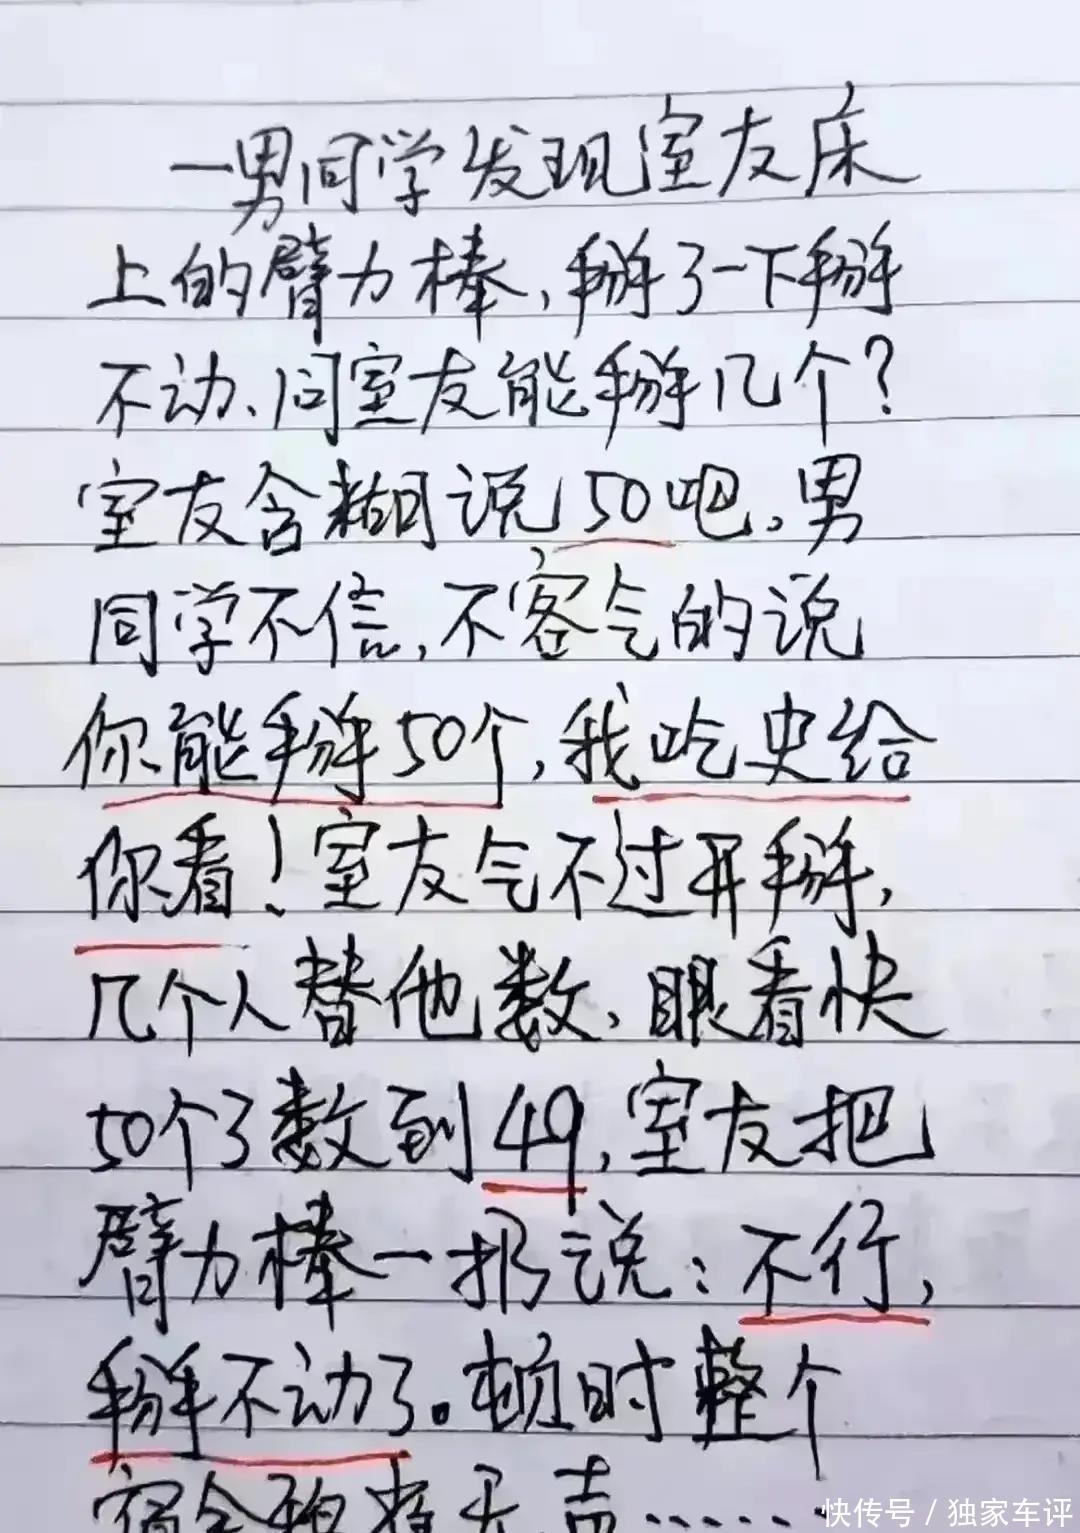 一男同学发现室友床
上的臂力棒,掰了一下掰
不动、问室友能掰几个?
室友含糊说50吧,男
同学不信,不客气的说
你能掰50个,我吃史给
你看!室友气不过开掰,
几个人替他数,眼看快
50个了数到49,室友把
臂力棒一扔说:不行,
掰不动了。顿时整个
宿舍鸦雀无声……
快传号/独家车评